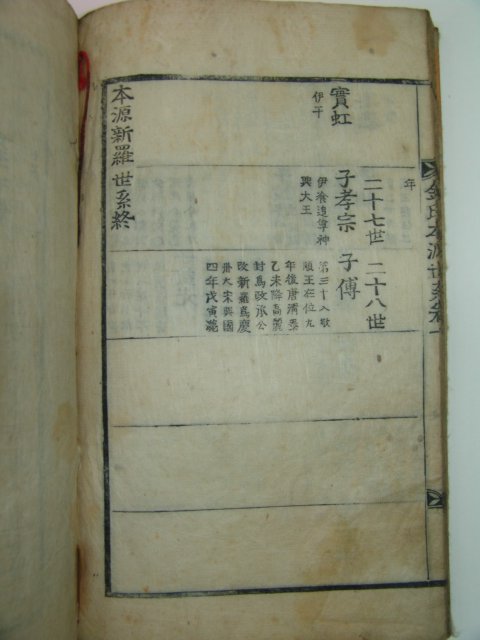 金氏本源世系卷一
年
實虹
伊干
二十七世
子孝宗
伊飡追尊神
興大王
二十八世
子傅
第三十八敬
順王在位九
年後唐淸泰
乙未降高麗
封爲政承公
改新羅爲慶
州大宋興國
四年戊寅薨
本源新羅世系終